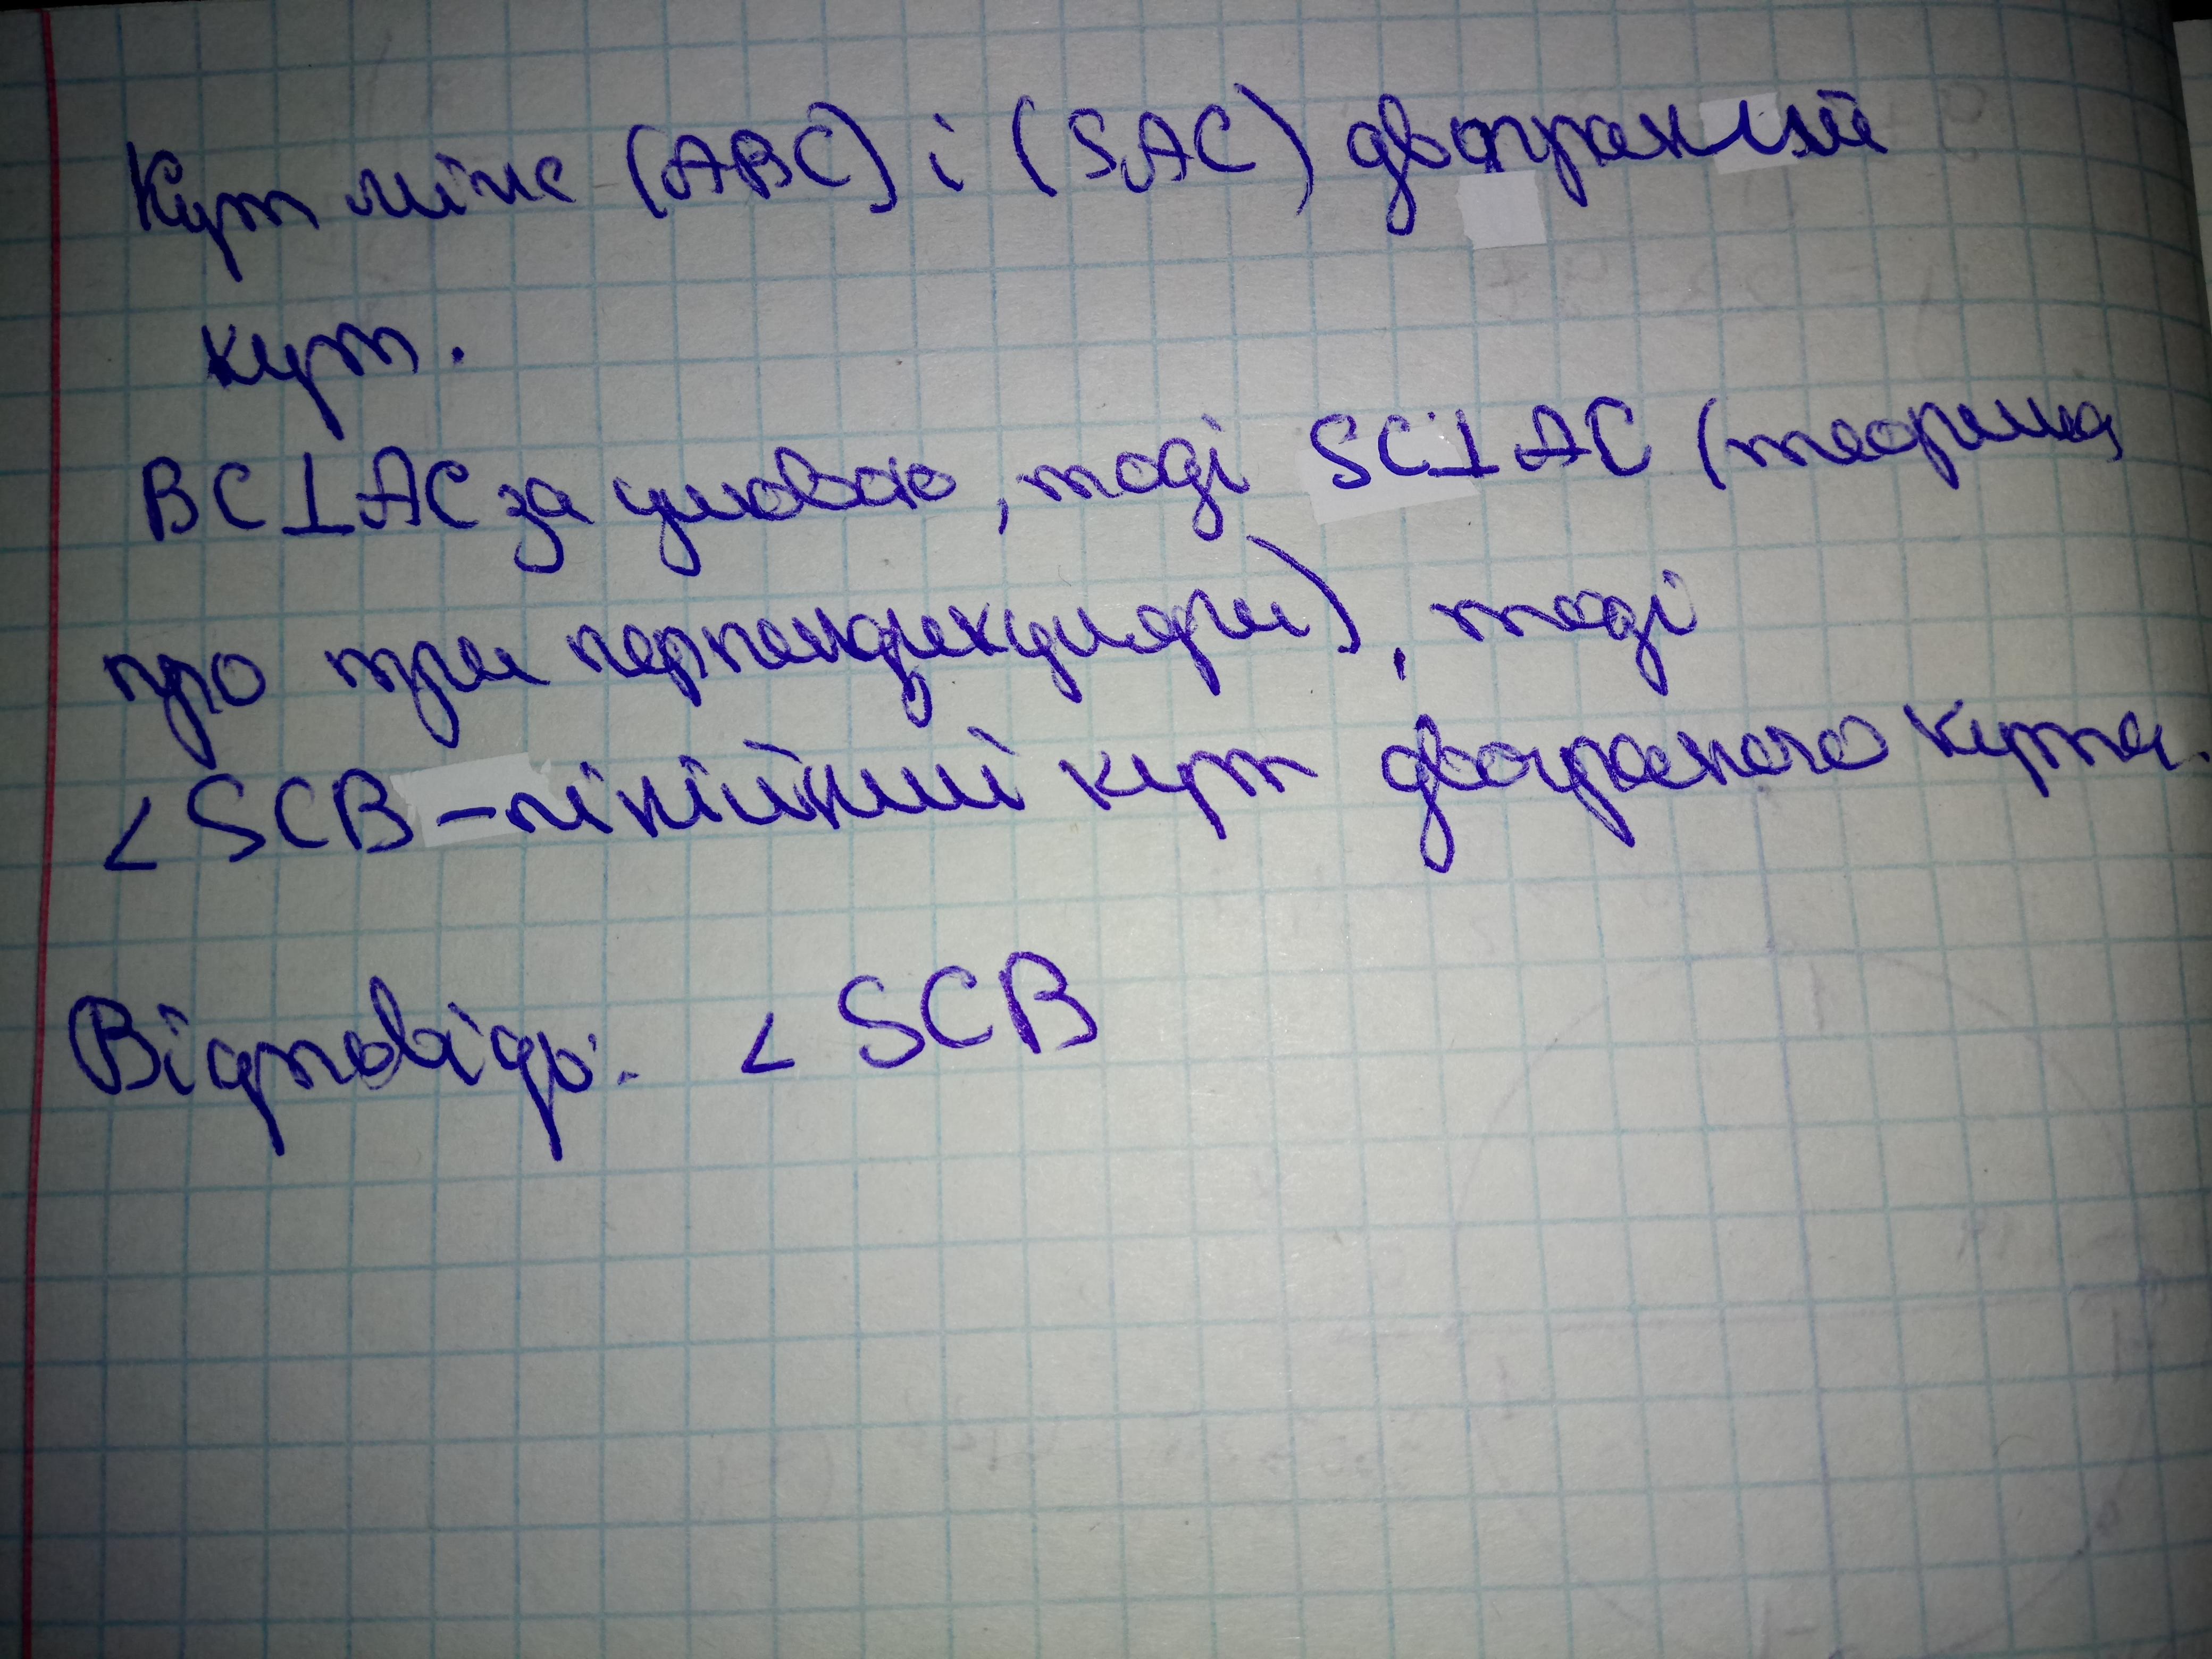 Кут між (ABC) і (SAC) двогранний
кут.
BC⊥AC за умовою, тоді SC⊥AC (теорема
про три перпендикуляри), тоді
∠SCB – лінійний кут двогранного кута.
Відповідь: ∠SCB